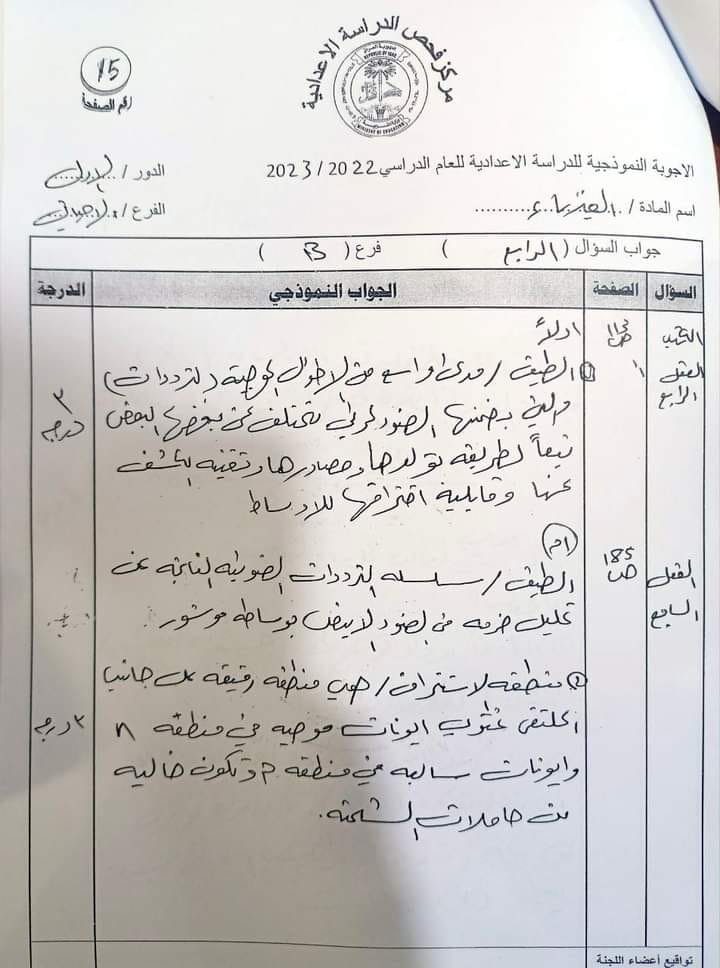 مركز فحص الدراسة الاعدادية
REPUBLIC OF IRAQ
MINISTRY OF EDUCATION
15
رقم الصفحة
الاجوبة النموذجية للدراسة الاعدادية للعام الدراسي 2022 / 2023
الدور /
اسم المادة / الفيزياء
الفرع / الاحيائي
جواب السؤال ( الرابع ) فرع ( B )
السؤال الصفحة الجواب النموذجي الدرجة
اولاً
ص 113
الفصل الرابع
① الطيف / مدى واسع من الاطوال الموجية (الترددات)
والتي بضمنها الضوء المرئي تختلف عن بعضها البعض
تبعاً لطريقة تولدها ومصادرها وتقنية الكشف
عنها وقابلية اختراقها للاوساط
٣ درجة
(ام)
الفصل السابع
ص 185
الطيف / سلسله الترددات الضوئيه الناتجه عن
تحليل حزمه من الضوء الابيض بوساطه موشور
② منطقه الاستنزاف / هي منطقه رقيقه على جانبي
الملتقى تحتوي ايونات موجبه في منطقه n
وايونات سالبه في منطقه P وتكون خاليه
من حاملات الشحنه.
٢ درجه
تواقيع أعضاء اللجنة